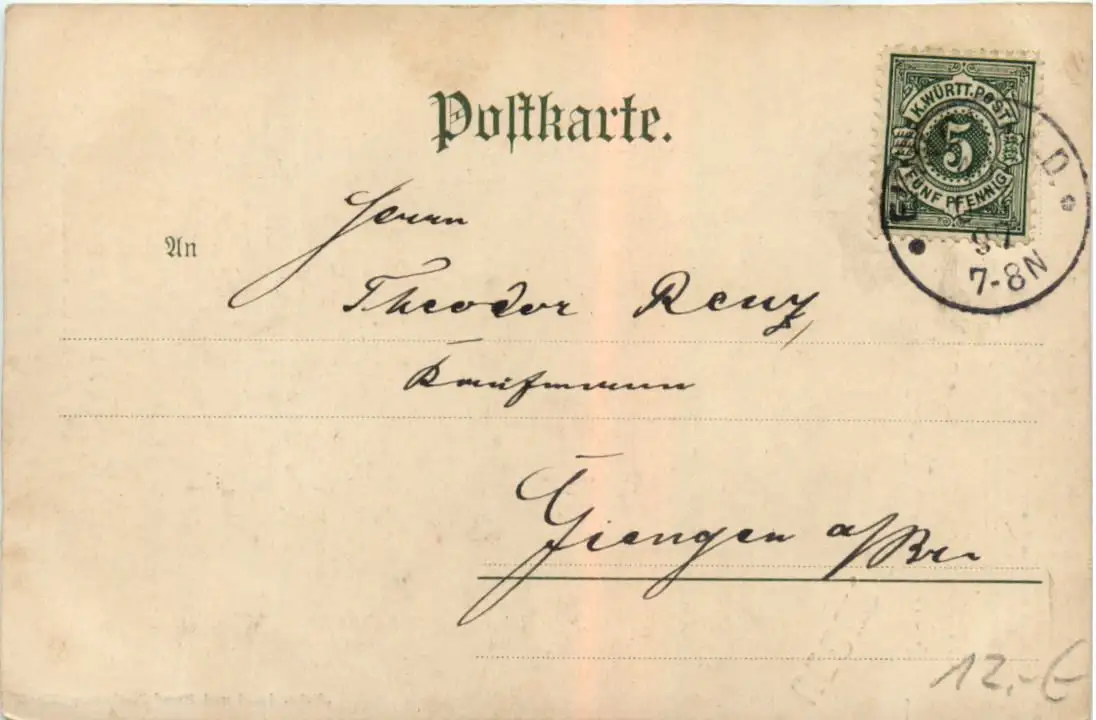 Postkarte.
K. WÜRTT. POST
5
FÜNF PFENNIG
D.
7-8N
An
Herrn
Theodor Renz,
Kaufmann
Giengen a/Br
12.-€